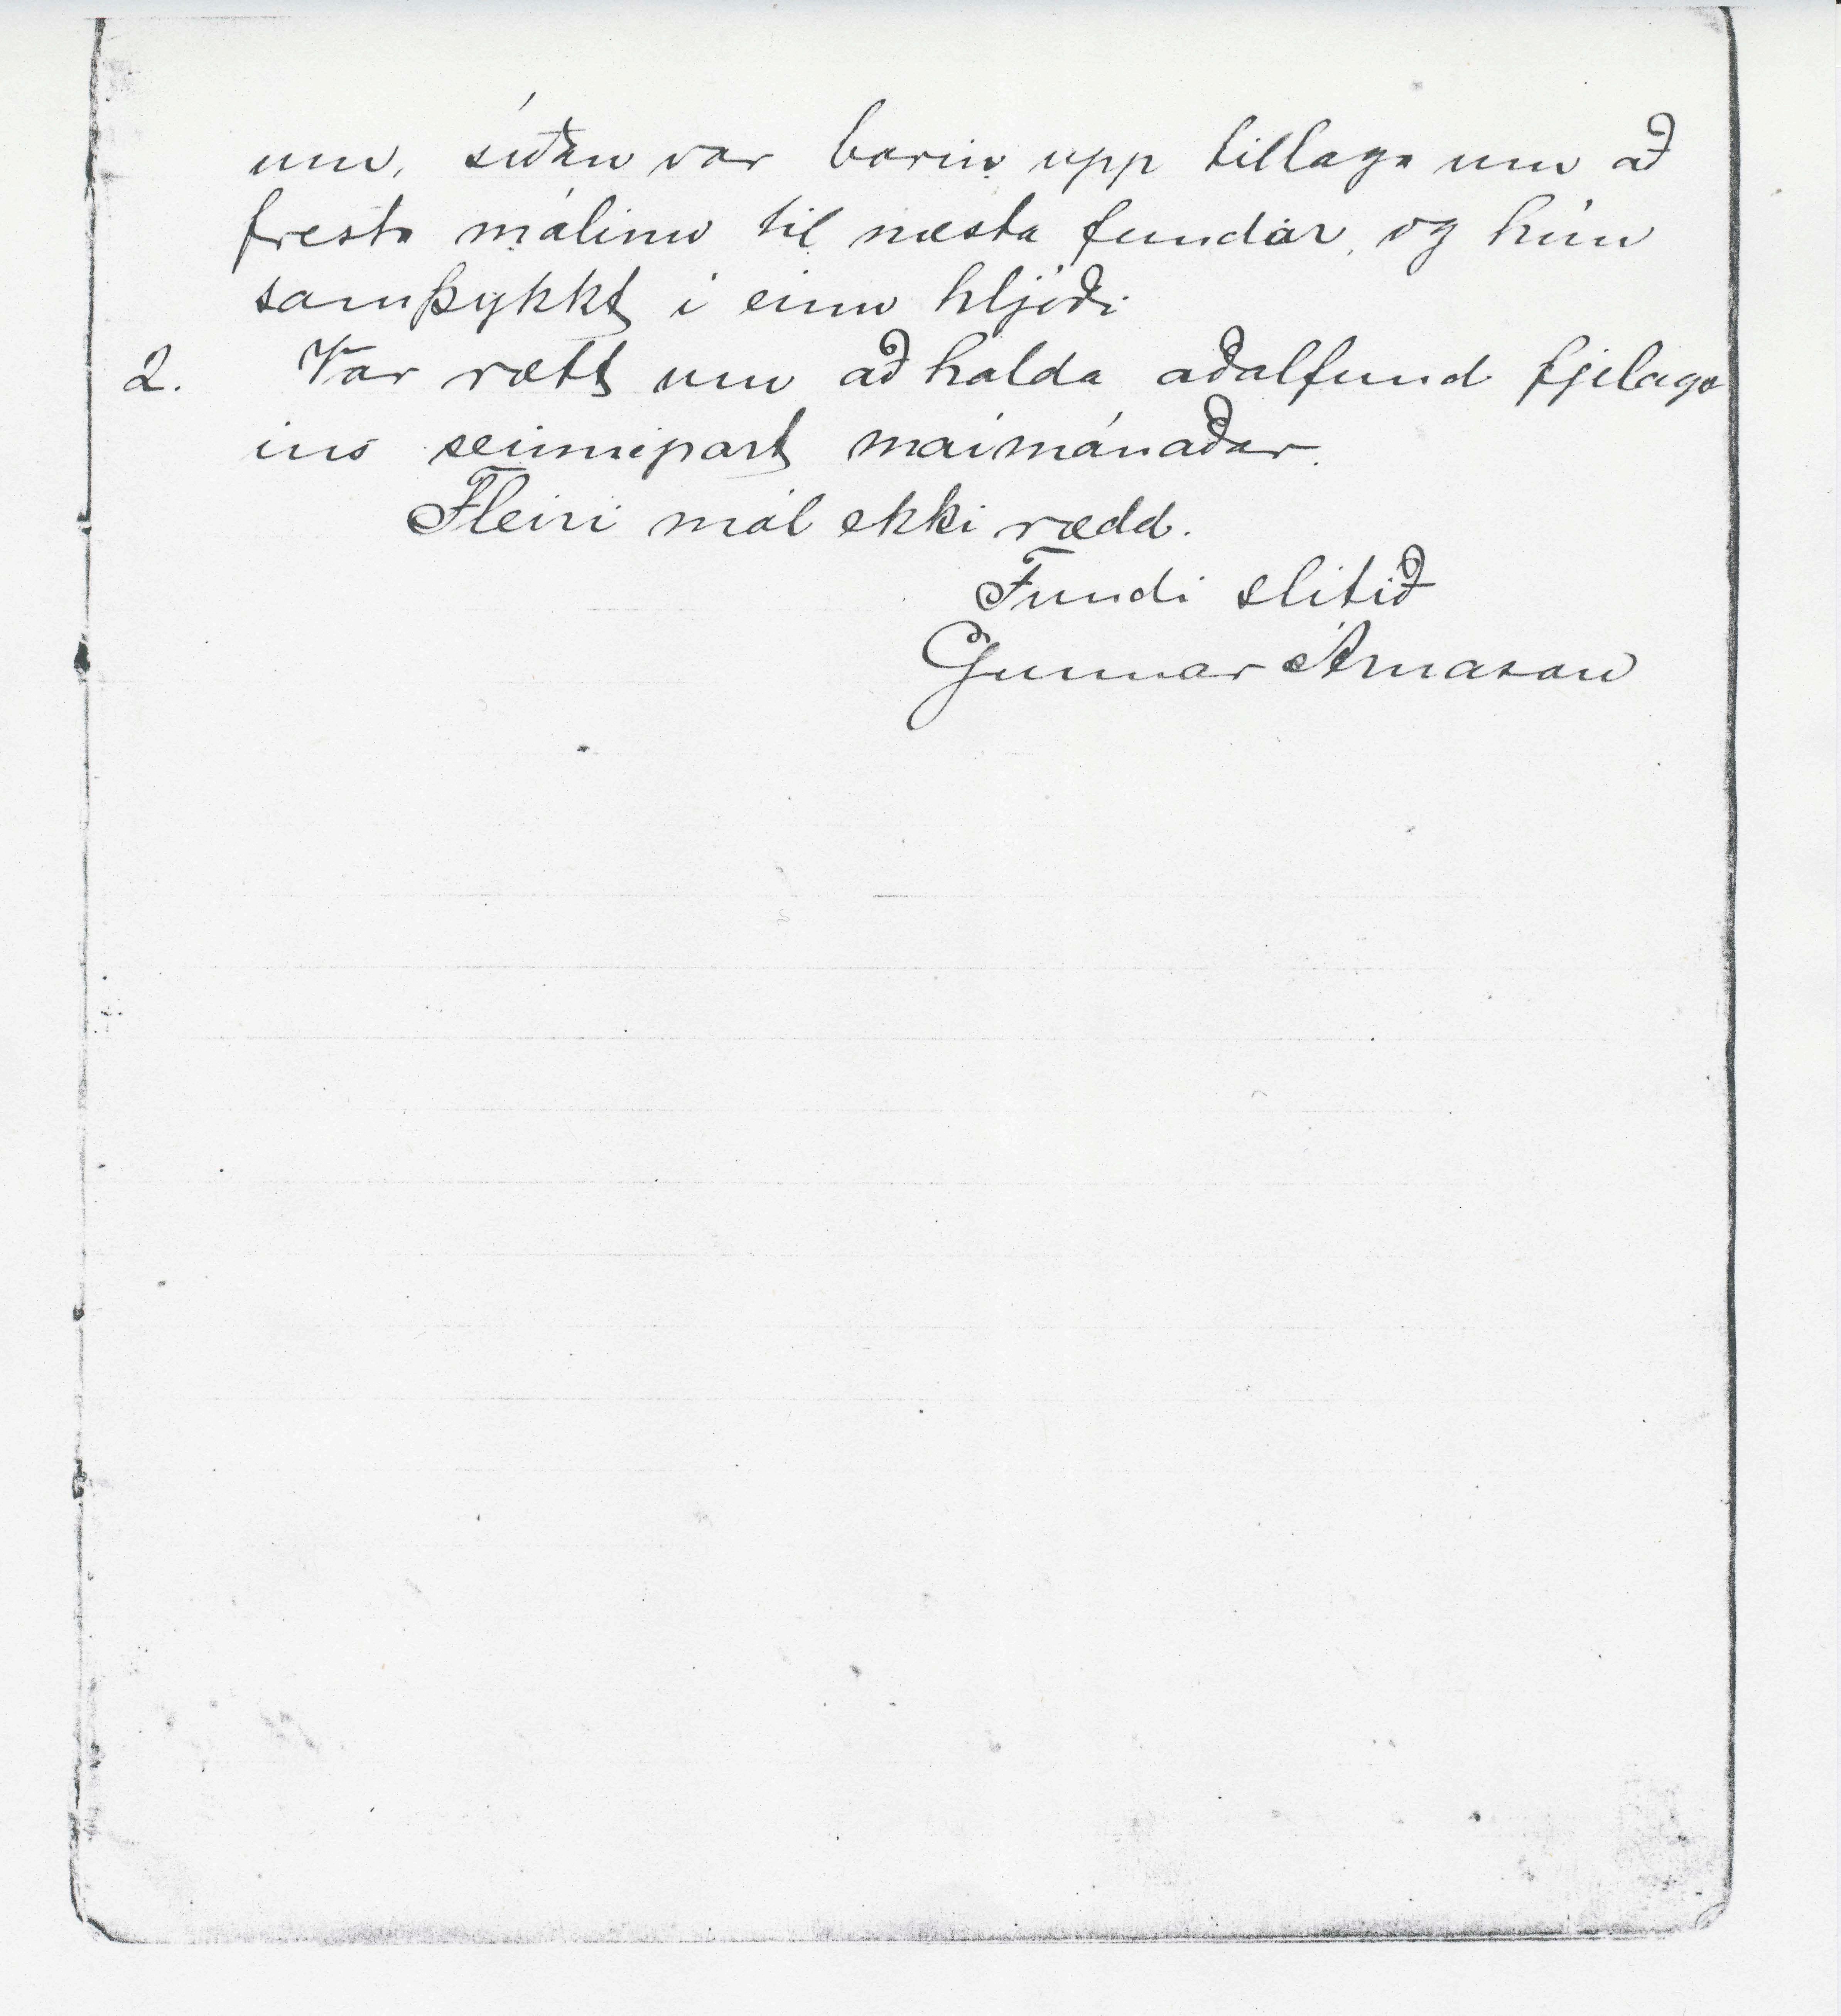 um, síðan var borin upp tillaga um að
fresta málinu til næsta fundar, og hún
samþykkt í einu hljóði
2. Var rætt um að halda aðalfund fjelags
ins seinnipart maímánaðar.
Fleiri mál ekki rædd.
Fundi slitið
Gunnar Árnason